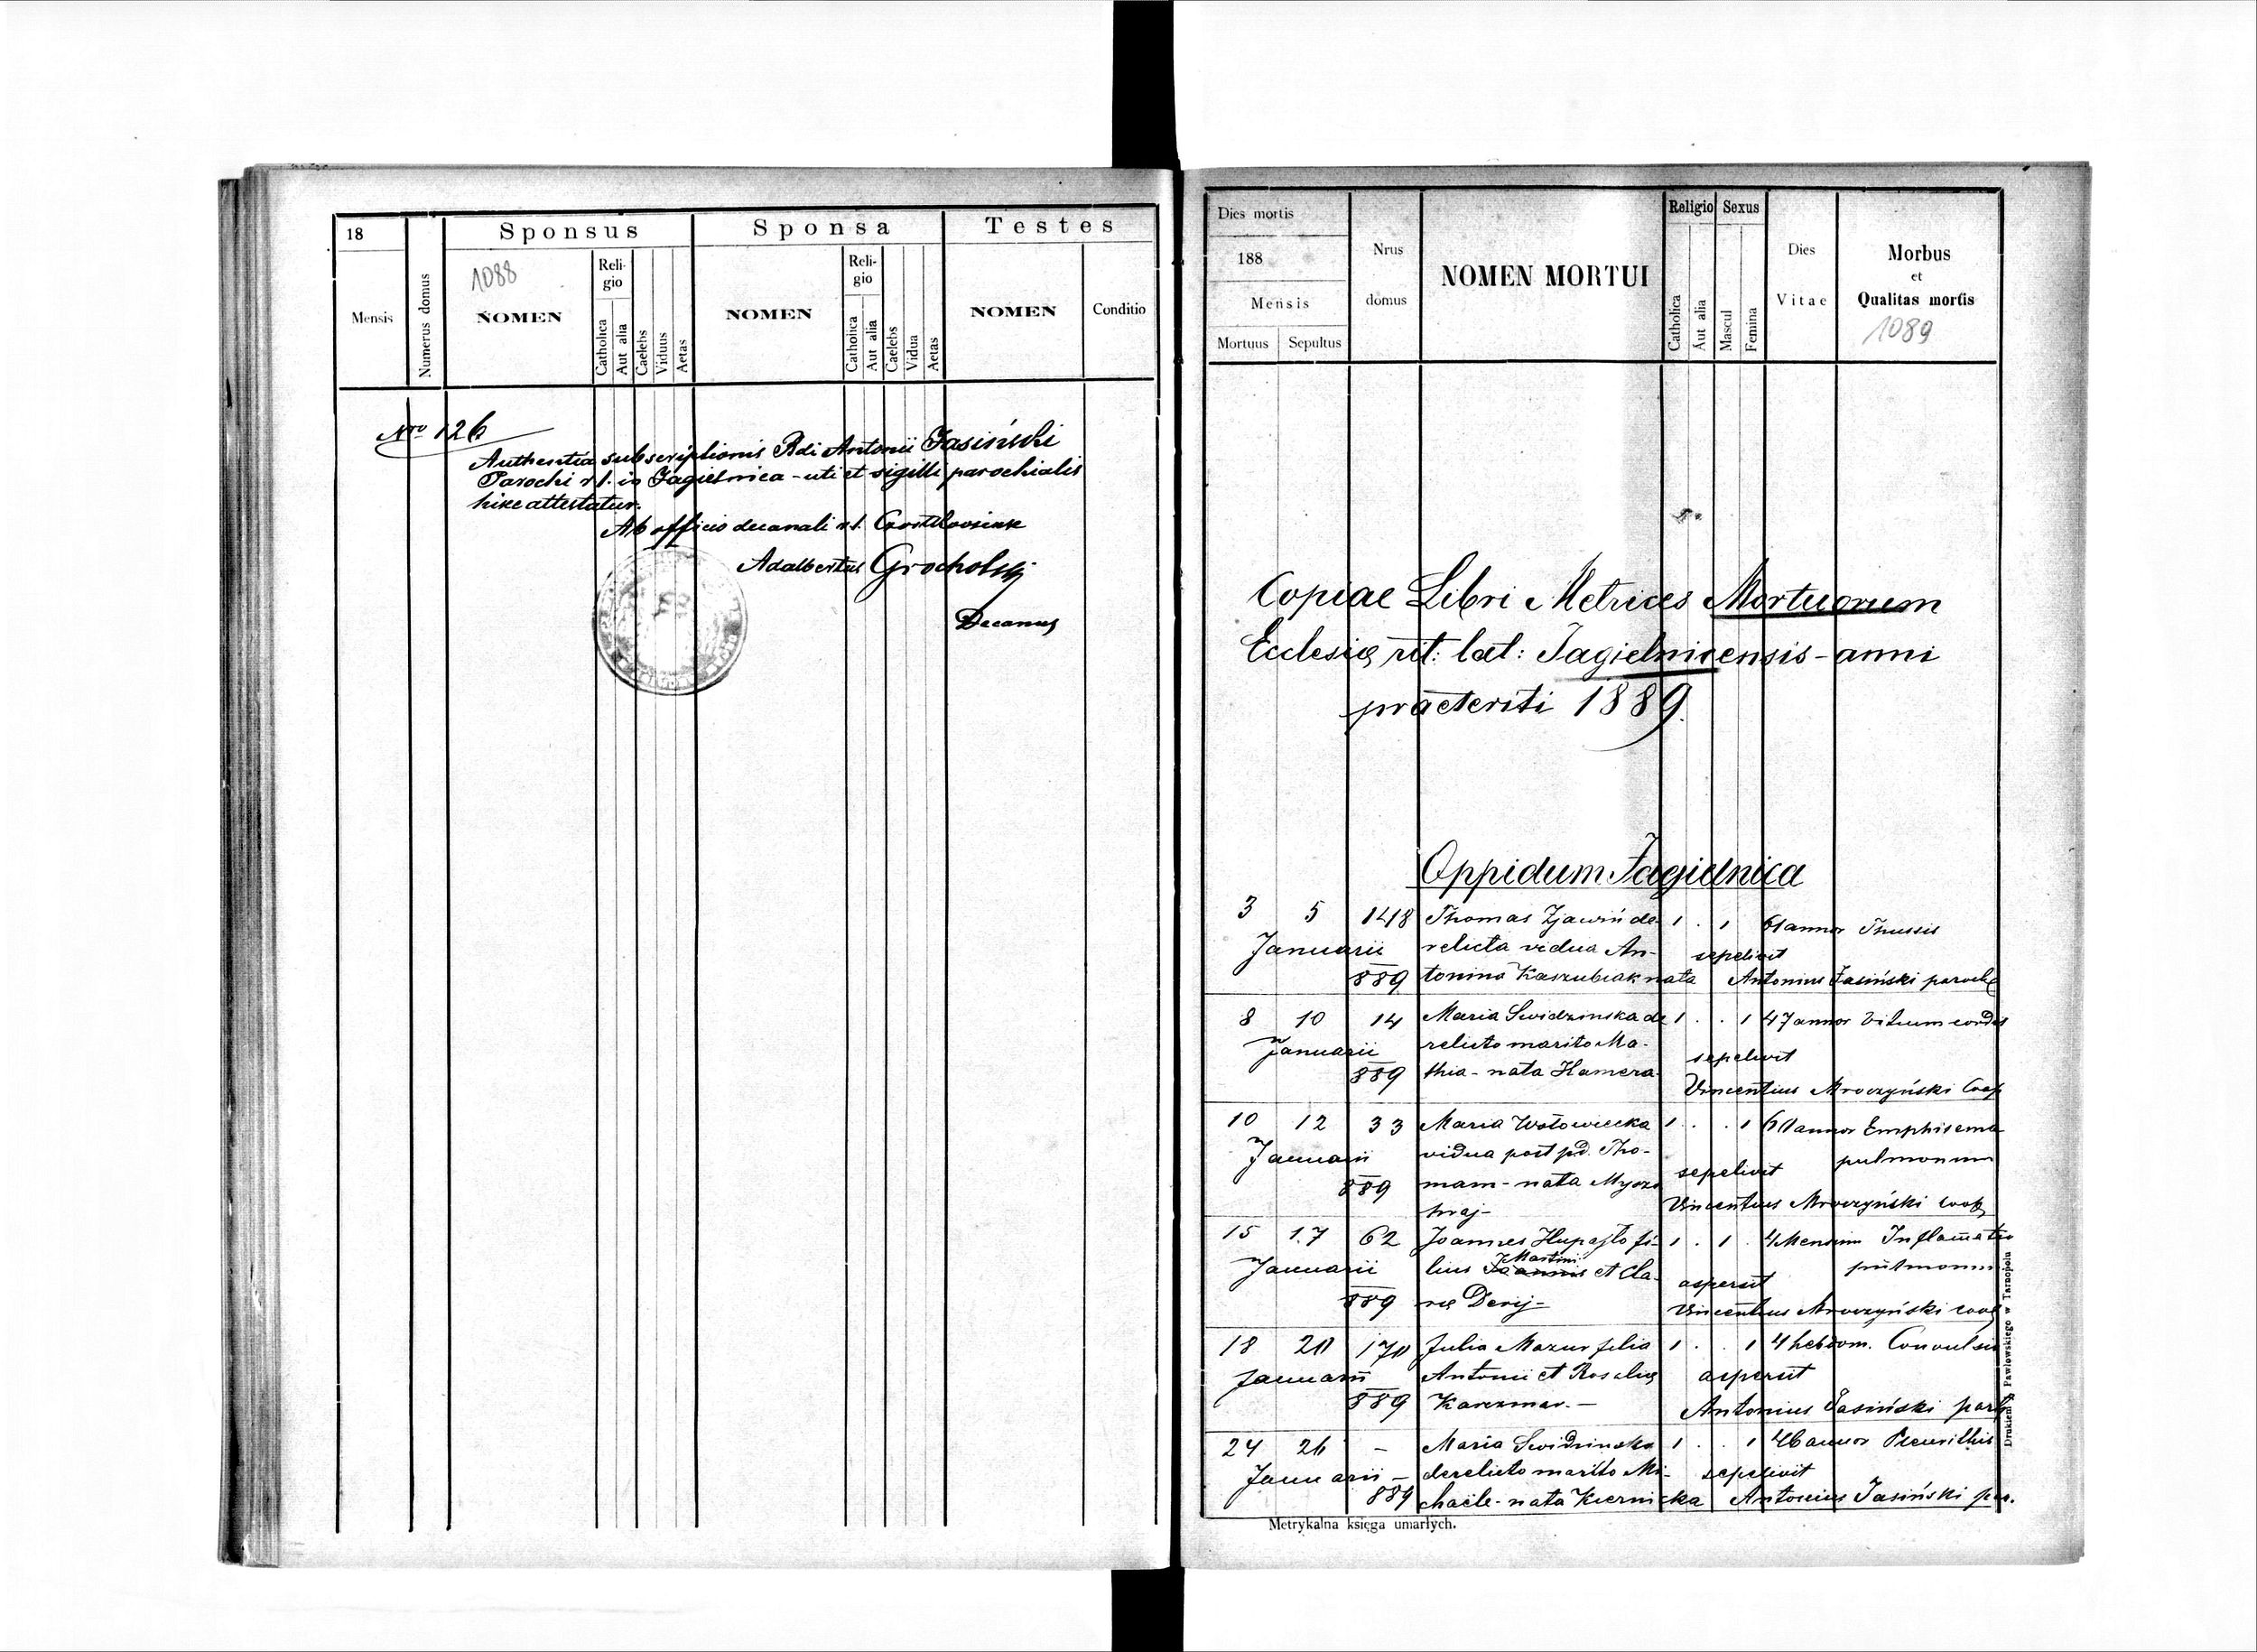 18
Mensis
Numerus domus
Sponsus
1088
NOMEN
Reli-
gio
Catholica
Aut alia
Caelebs
Viduus
Aetas
Sponsa
NOMEN
Reli-
gio
Catholica
Aut alia
Caelebs
Vidua
Aetas
Testes
NOMEN
Conditio
Nro 126
Authentia subscriptionis Rdi Antonii Jasiński
Parochi r. l. in Jagielnica - uti et sigilli parochialis
hisce attestatur.
Ab officio decanali r. l.
Adalbertus Grocholski
Decanus
Dies mortis
188
Mensis
Mortuus
Sepultus
Nrus
domus
NOMEN MORTUI
Religio
Catholica
Aut alia
Sexus
Mascul
Femina
Dies
Vitae
Morbus
et
Qualitas mortis
1089
Copiae Libri Metrices Mortuorum
Ecclesię rit: lat: Jagielnicensis - anni
praeteriti 1889.
Oppidum Jagielnica
3 5 148 Thomas Zjawiń de- 1 . 1 61 annor Thussis
Januarii relicta vidua An- sepelivit
889 tonina Kaszubiak nata Antonius Jasiński paroch
8 10 14 Maria Swidzinska de 1 . . 1 47 annor Vitium cordis
Januarii relicto marito Ma- sepelivit
889 thia - nata Hamera Vincentius Mroczyński Coop
10 12 33 Maria Wołowiecka 1 . . 1 60 annor Emphisema
Januarii vidua post pd. Tho- sepelivit pulmonum
889 mam - nata
Vincentius Mroczyński coop
15 17 62 Joannes Hupajło fi- 1 . 1 . 4 Mensium Inflamatio
Martini
Januarii lius Joannis et Cla- aspersit pulmonum
889 rę Derij - Vincentius Mroczyński coop
18 20 170 Julia Mazur filia 1 . . 1 4 hebdom. Convulsio
Januarii Antonii et Rosalię aspersit
889 Karczmar. - Antonius Jasiński par
24 26 - Maria Swidzinska 1 . . 1 46 annor Pleurithis
Januarii - derelicto marito Mi- sepelivit
889 chaële - nata Kiernicka Antonius Jasiński par.
Metrykalna księga umarłych.
Drukiem J. Pawłowskiego w Tarnopolu